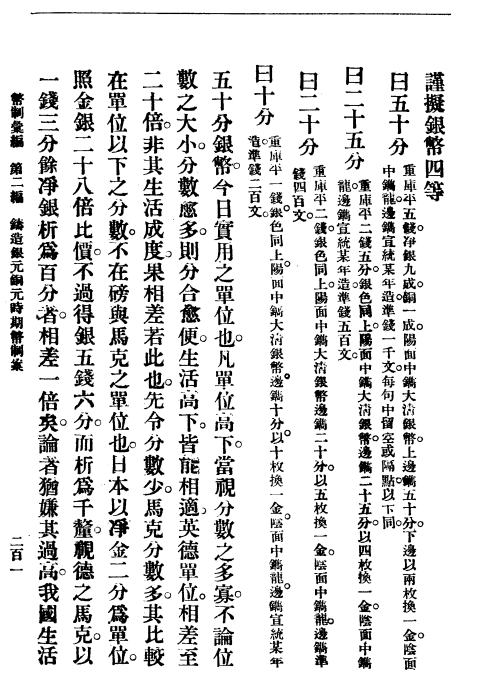 謹擬銀幣四等
曰五十分 重庫平五錢淨銀九成銅一成陽面中鐫大淸銀幣上邊鐫五十分下邊以兩枚換一金陰面
中鐫龍邊鐫宣統某年造準錢一千文每句中留空或隔點以下同
曰二十五分 重庫平二錢五分銀色同上陽面中鐫大淸銀幣邊鐫二十五分以四枚換一金陰面中鐫
龍邊鐫宣統某年造準錢五百文
曰二十分 重庫平二錢銀色同上陽面中鐫大淸銀幣邊鐫二十分以五枚換一金陰面中鐫龍邊鐫準
錢四百文
曰十分 重庫平一錢銀色同上陽面中鐫大淸銀幣邊鐫十分以十枚換一金陰面中鐫龍邊鐫宣統某年
造準錢二百文
五十分銀幣今日實用之單位也凡單位高下當視分數之多寡不論位
數之大小分數愈多則分合愈便生活高下皆能相適英德單位相差至
二十倍非其生活成度果相差若此也先令分數少馬克分數多其比較
在單位以下之分數不在磅與馬克之單位也日本以淨金二分爲單位
照金銀二十八倍比價不過得銀五錢六分而析爲千釐視德之馬克以
一錢三分餘淨銀析爲百分者相差一倍矣論者猶嫌其過高我國生活
幣制彙編 第二編 鑄造銀元銅元時期幣制案 二百一